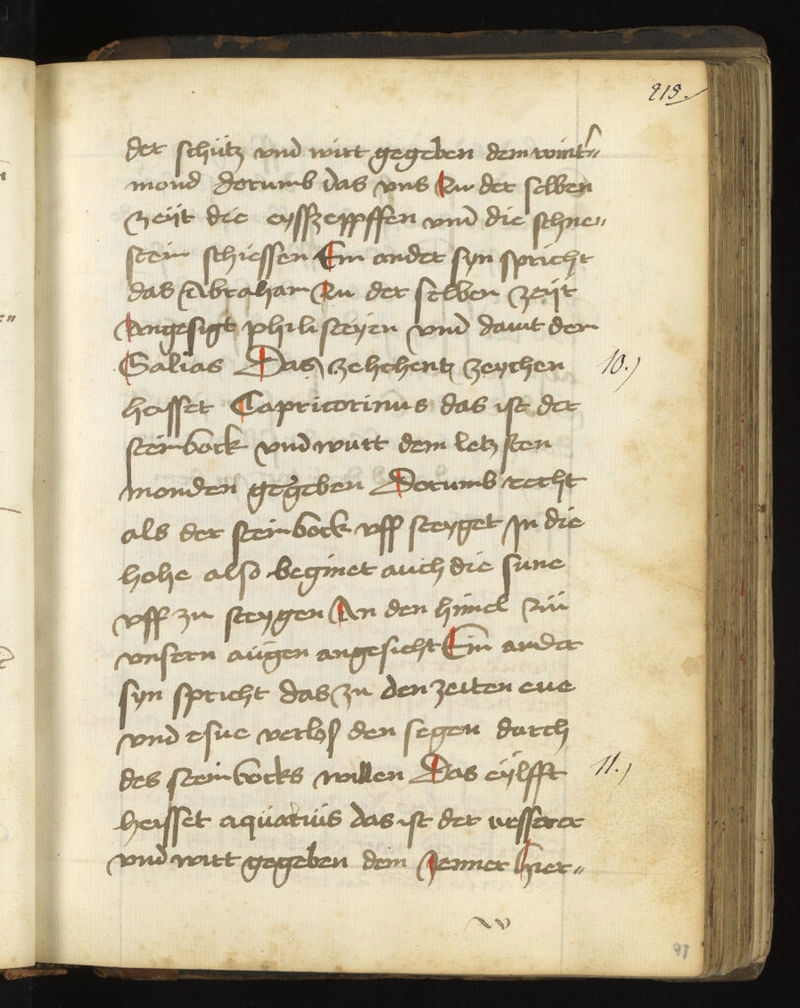 218.
der schütz vnd wirt gegeben dem wint'=
mond dorumb das vns zu der selben
zeÿt die eÿsszepffen vnd die schne=
stein schiessen Ein ander syn spricht
das Abraham zu der selben zeÿt
Angesigt philisteÿen vnd damit den
Galias Das zehehentz zeychen
10.)
heisset Capricorinus das ist der
steinbock vnd wurt dem letzsten
monden gegeben Dorumb recht
als der steinbock vff steyget Jn die
hohe also beginet auch die sune
vff zu steygen An den himel zu
vnsern augen angesicht Ein ander
syn spricht das zu den zeiten eue
vnd esue verlos den segen durch
des steinbocks willen Das eÿlfft
11.)
heisset aquarius das ist der
vnd wirt gegeben dem Jenner hier=